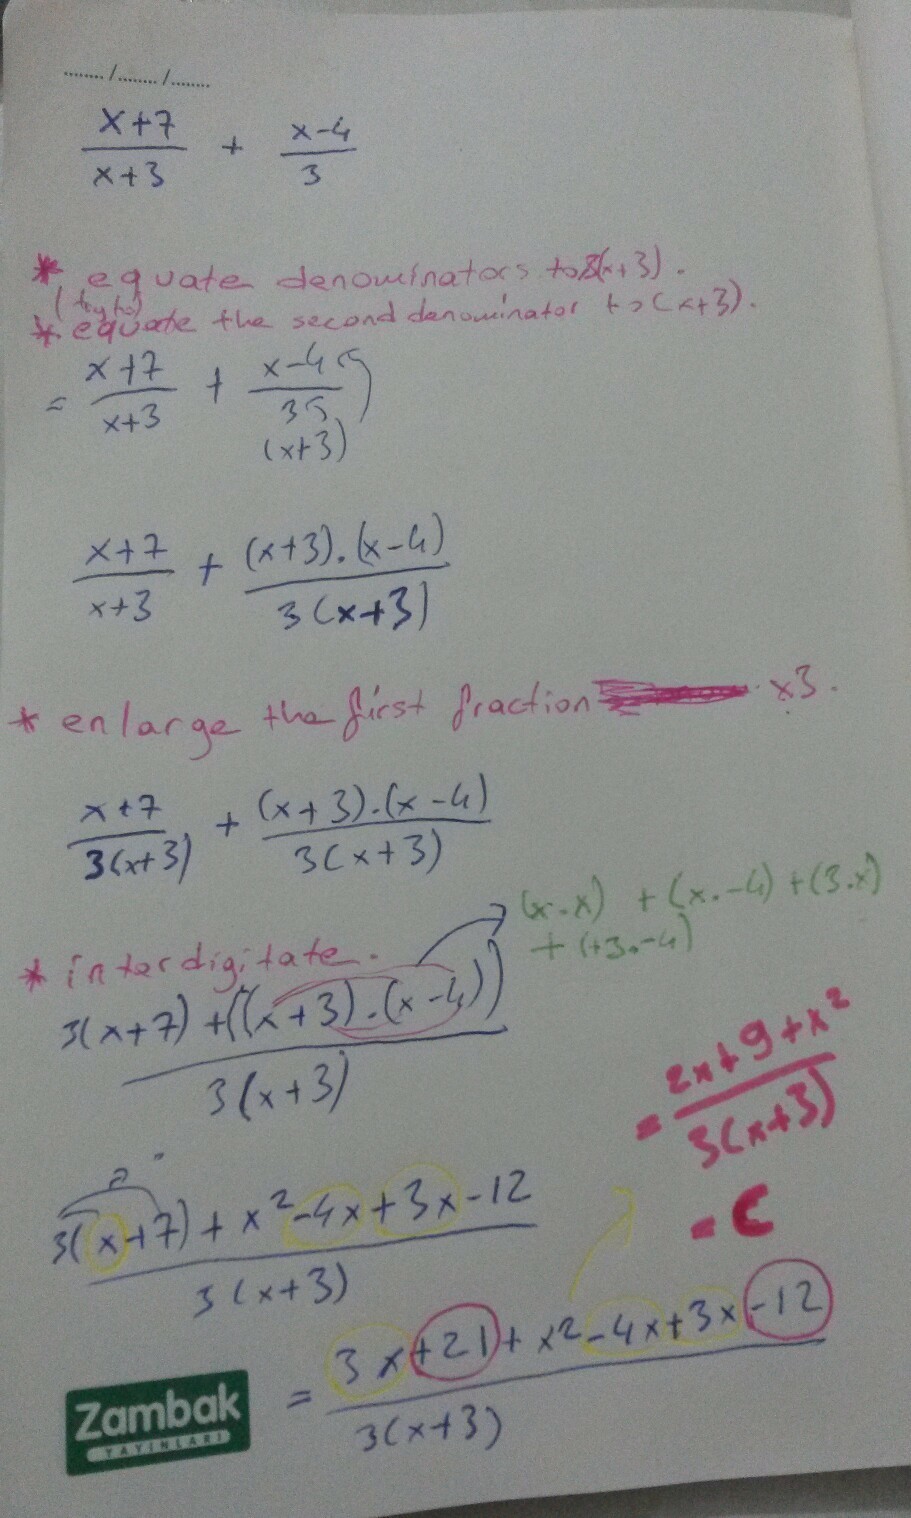 ......../......../........
x+7/x+3 + x-4/3
* equate denominators to 3(x+3).
(try to)
* equate the second denominator to (x+3).
= x+7/x+3 + x-4/3
(x+3)
x+7/x+3 + (x+3).(x-4)/3(x+3)
* enlarge the first fraction x3.
x+7/3(x+3) + (x+3).(x-4)/3(x+3)
(x.x) + (x.-4) + (3.x)
+ (+3.-4)
* interdigitate.
3(x+7) + ((x+3).(x-4))/3(x+3)
= 2x+9+x²/3(x+3)
= C
3(x+7) + x²-4x+3x-12/3(x+3)
= 3x+21+x²-4x+3x-12/3(x+3)
Zambak
YAYINLARI